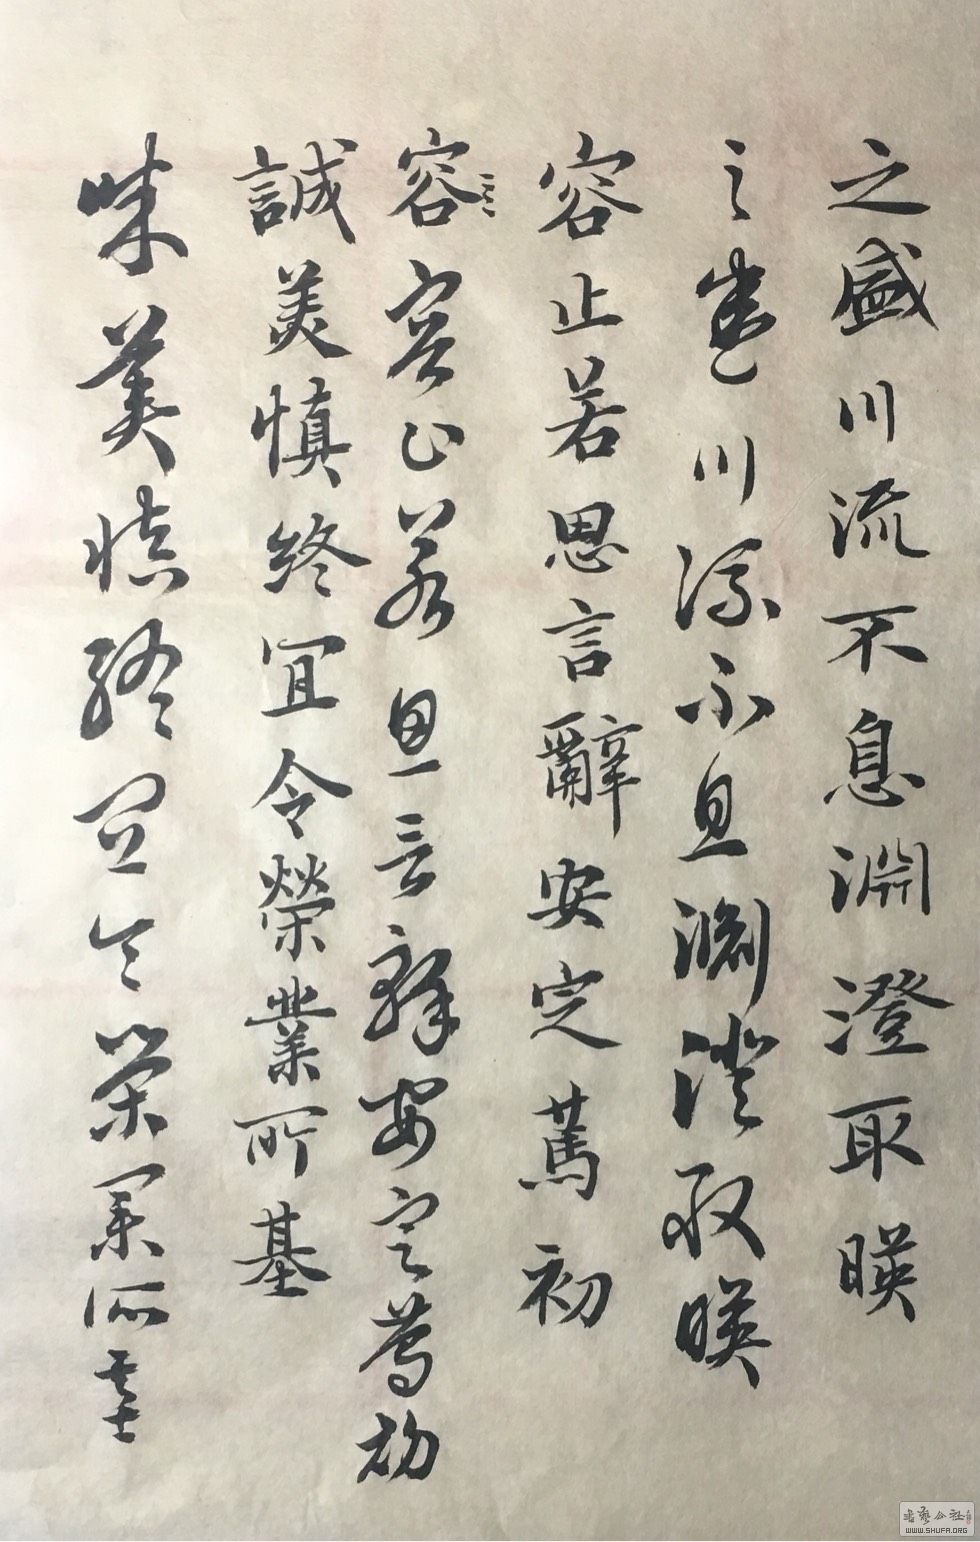 之盛川流不息淵澄取暎
之盛川流不息淵澄取暎
容止若思言辭安定篤初
容容止若思言辭安定篤初
誠美慎終宜令榮業所基
誠美慎終宜令榮業所基
書藝公社
WWW.SHUFA.ORG